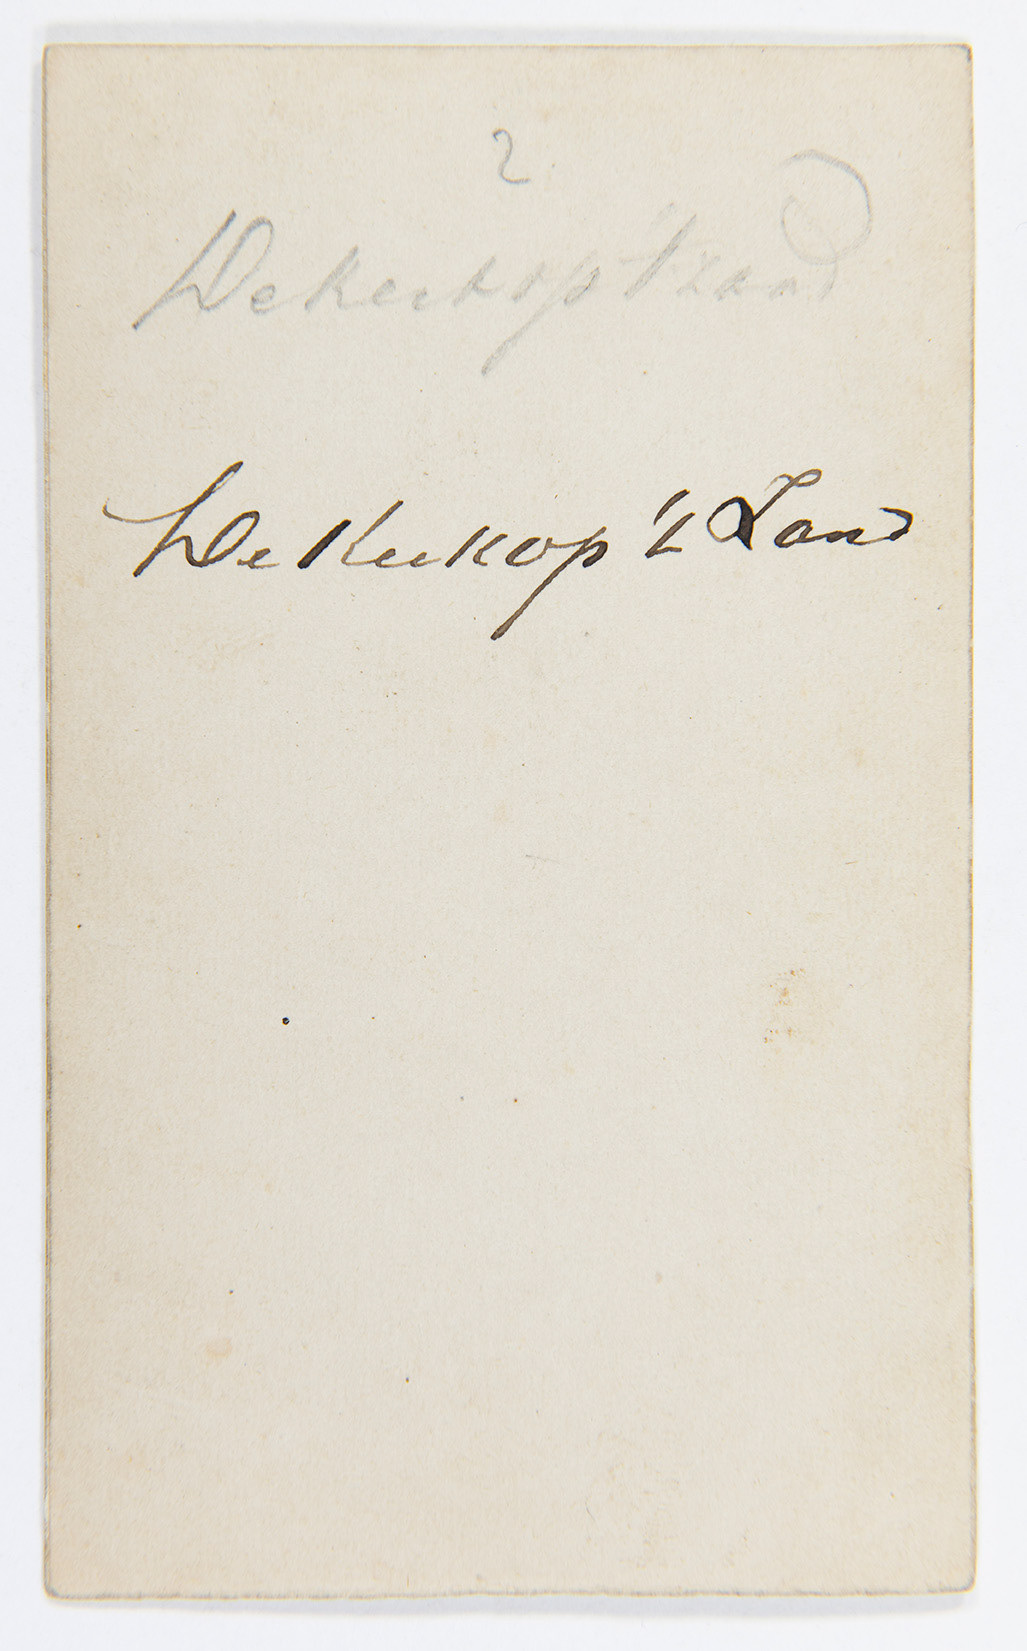 2
De Kerk op 't zand
De Kerk op 't Zand